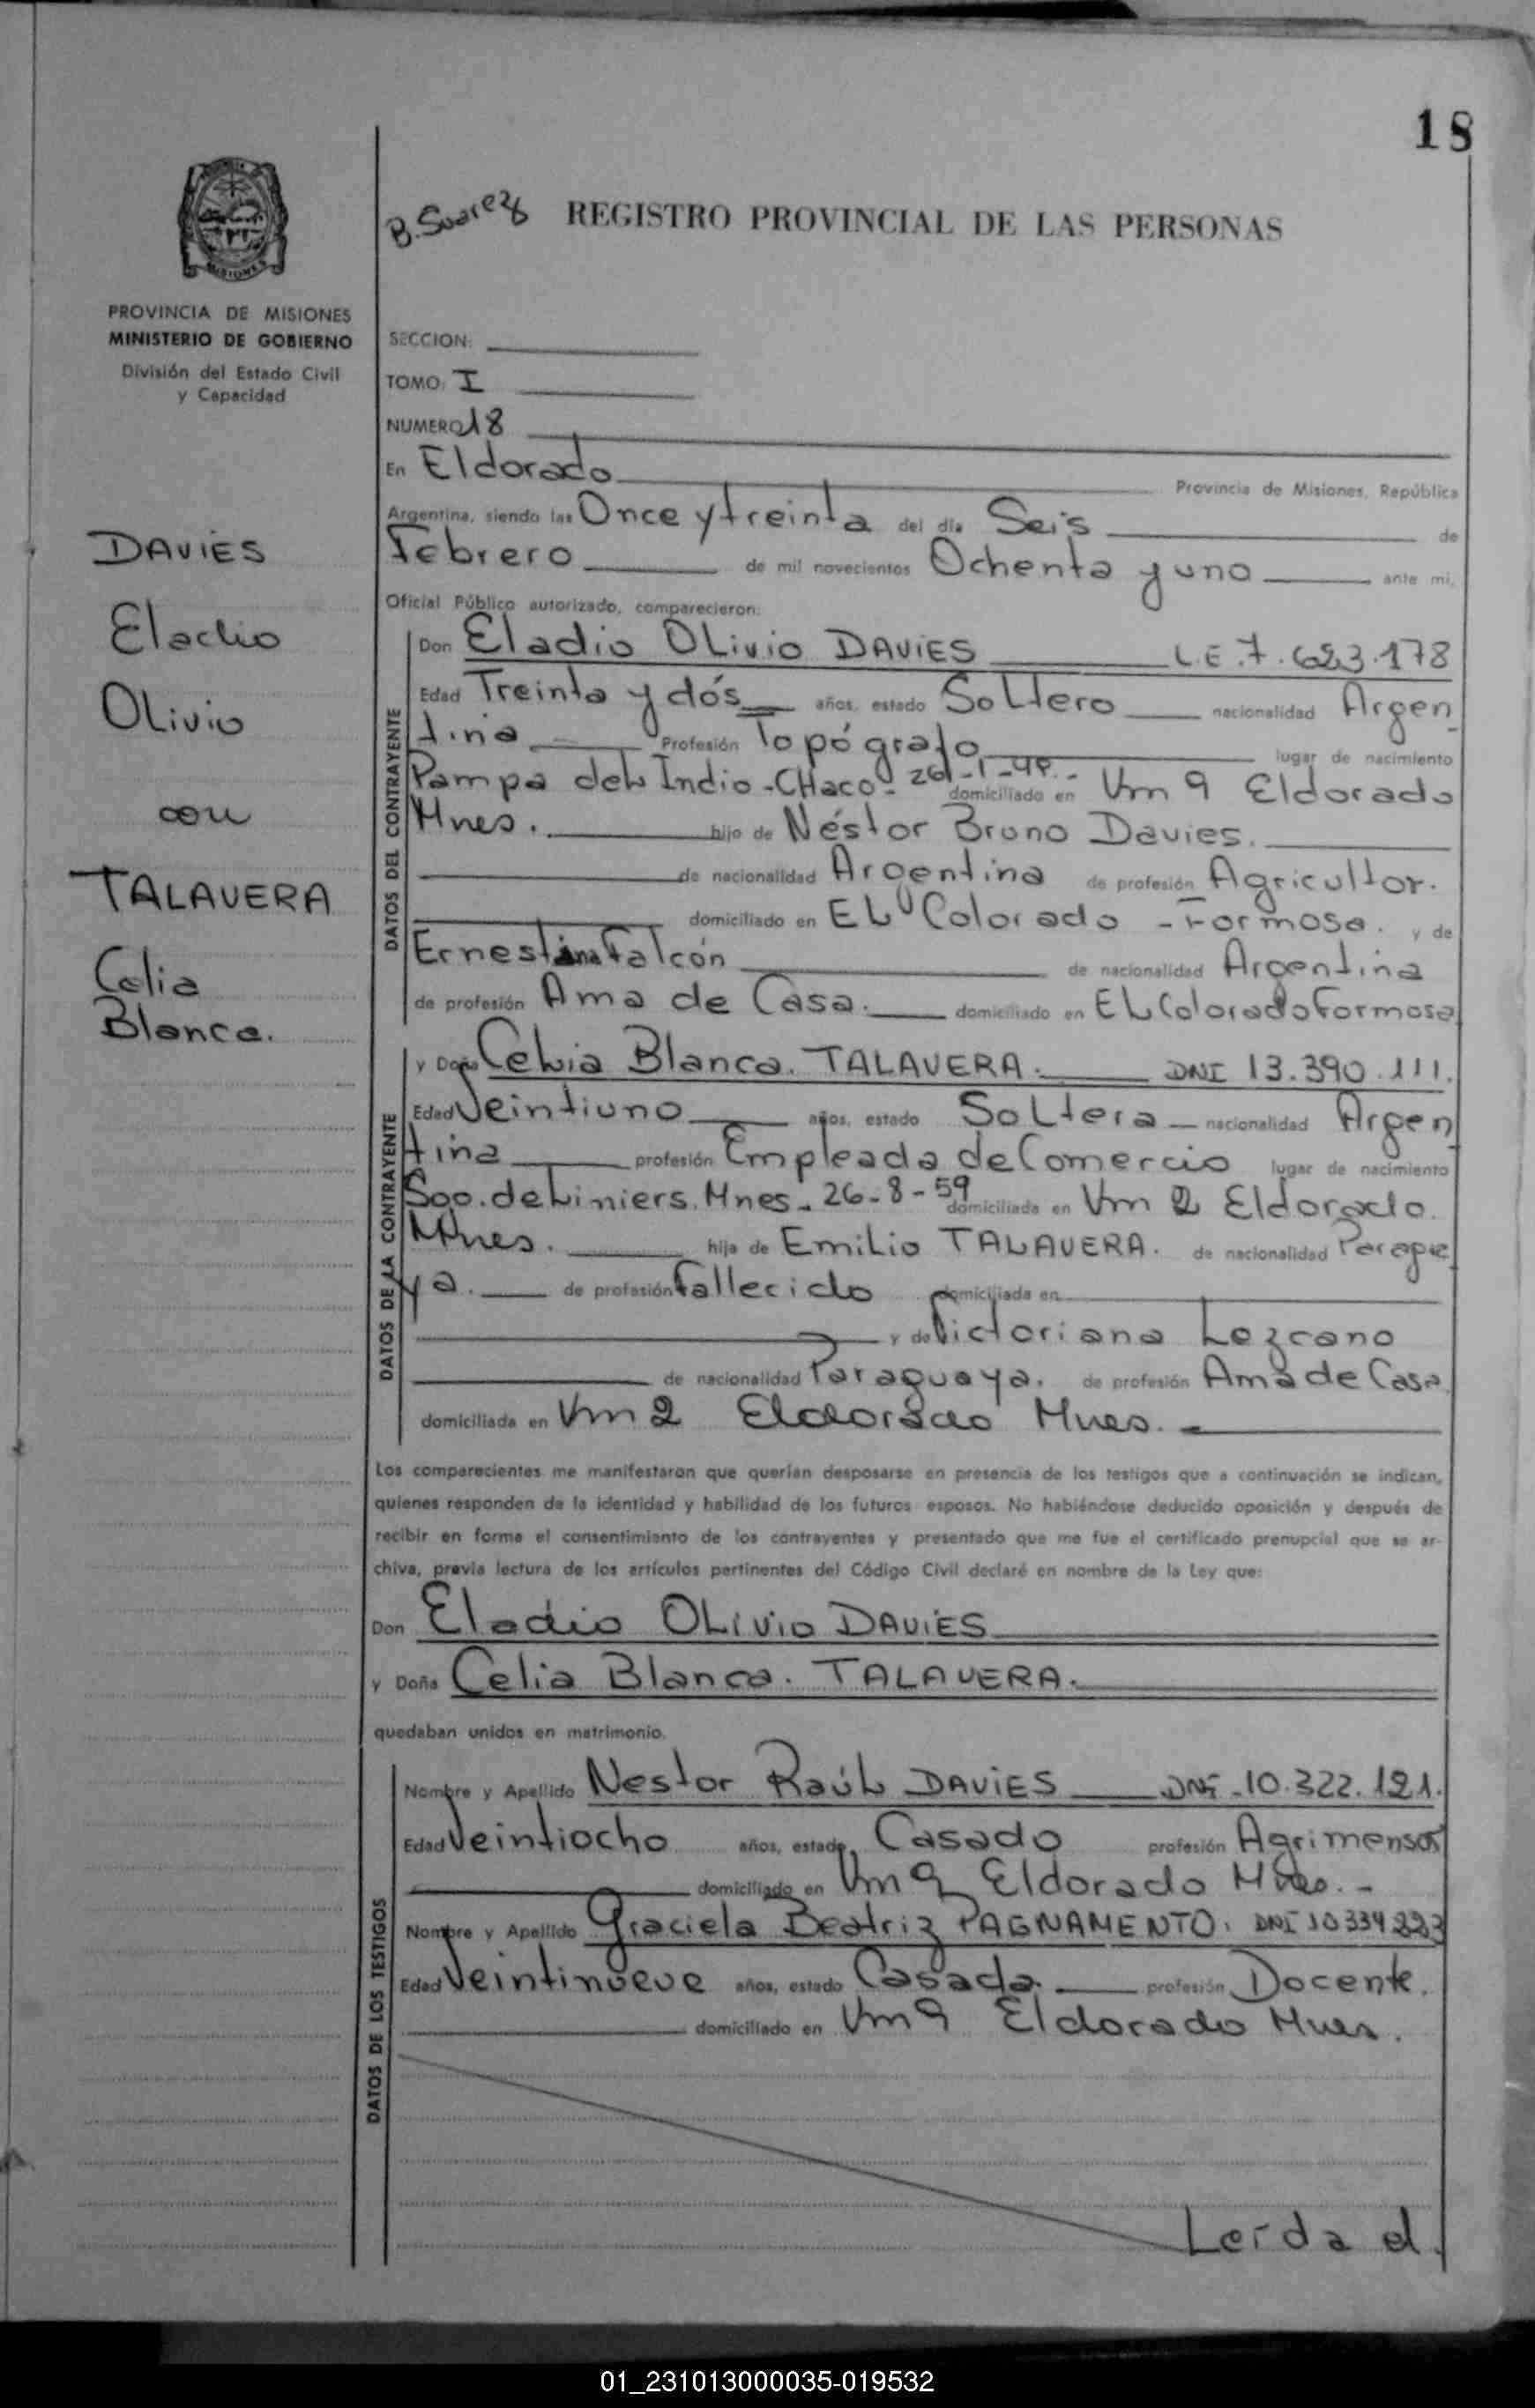 18
B. Suarez REGISTRO PROVINCIAL DE LAS PERSONAS
MISIONES
PROVINCIA DE MISIONES
MINISTERIO DE GOBIERNO
División del Estado Civil
y Capacidad
SECCION:
TOMO: I
NUMERO 18
En Eldorado Provincia de Misiones, República
Argentina, siendo las Once y treinta del día Seis de
Febrero de mil novecientos Ochenta y uno ante mi,
Oficial Público autorizado, comparecieron:
DAVIES
Eladio
Olivio
con
TALAVERA
Celia
Blanca.
DATOS DEL CONTRAYENTE
Don Eladio Olivio DAVIES L.E. 7.623.178
Edad Treinta y dós años, estado Soltero nacionalidad Argen
tina Profesión Topógrafo lugar de nacimiento
Pampa del Indio - CHaco - 26-1-49.- domiciliado en Km 9 Eldorado
Mnes. hijo de Néstor Bruno Davies.
de nacionalidad Argentina de profesión Agricultor.
domiciliado en EL Colorado - Formosa. y de
Ernestina Falcón de nacionalidad Argentina
de profesión Ama de Casa. domiciliado en EL Colorado Formosa
DATOS DE LA CONTRAYENTE
y Doña Celia Blanca. TALAVERA. DNI 13.390.111.
Edad Veintiuno años, estado Soltera nacionalidad Argen
tina profesión Empleada de Comercio lugar de nacimiento
Sgo. de Liniers. Mnes. 26-8-59 domiciliada en Km 2 Eldorado.
Mnes. hija de Emilio TALAVERA. de nacionalidad Paragua
ya. de profesión Fallecido domiciliada en
y de Victoriana Lezcano
de nacionalidad Paraguaya. de profesión Ama de Casa
domiciliada en Km 2 Eldorado Mnes.
Los comparecientes me manifestaron que querían desposarse en presencia de los testigos que a continuación se indican,
quienes responden de la identidad y habilidad de los futuros esposos. No habiéndose deducido oposición y después de
recibir en forma el consentimiento de los contrayentes y presentado que me fue el certificado prenupcial que se ar-
chiva, previa lectura de los artículos pertinentes del Código Civil declaré en nombre de la Ley que:
Don Eladio Olivio DAVIES
y Doña Celia Blanca. TALAVERA.
quedaban unidos en matrimonio.
DATOS DE LOS TESTIGOS
Nombre y Apellido Nestor Raúl DAVIES DNI - 10.322.121.
Edad Veintiocho años, estado Casado profesión Agrimensor
domiciliado en Km 9 Eldorado Mnes. -
Nombre y Apellido Graciela Beatriz PAGNAMENTO. DNI 10334223
Edad Veintinueve años, estado Casada. profesión Docente.
domiciliado en Km 9 Eldorado Mnes.
Leída el
01_231013000035-019532